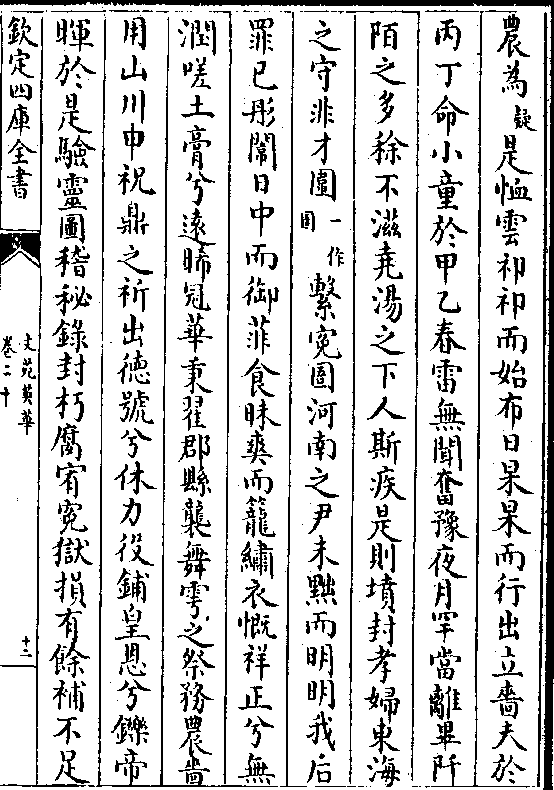 農為疑是恤雲祁祁而始布日杲杲而行出立嗇夫於
丙丁命小童於甲乙春雷無聞奮豫夜月罕當離畢阡
陌之多稌不滋堯湯之下人斯疾是則墳封孝婦東海
之守非才圄一作圉繫寃圄河南之尹未黜而明明我后
罪已彤闈日中而御菲食昧爽而籠繡衣慨祥正兮無
潤嗟土膏兮遠晞冠華秉翟郡縣襲舞雩之祭務農嗇
用山川申祝鼎之祈出德號兮休力役鋪皇恩兮鑠帝
暉於是驗靈圖稽秘錄封朽腐宥寃獄損有餘補不足
欽定四庫全書
文苑英華
卷二十
十二